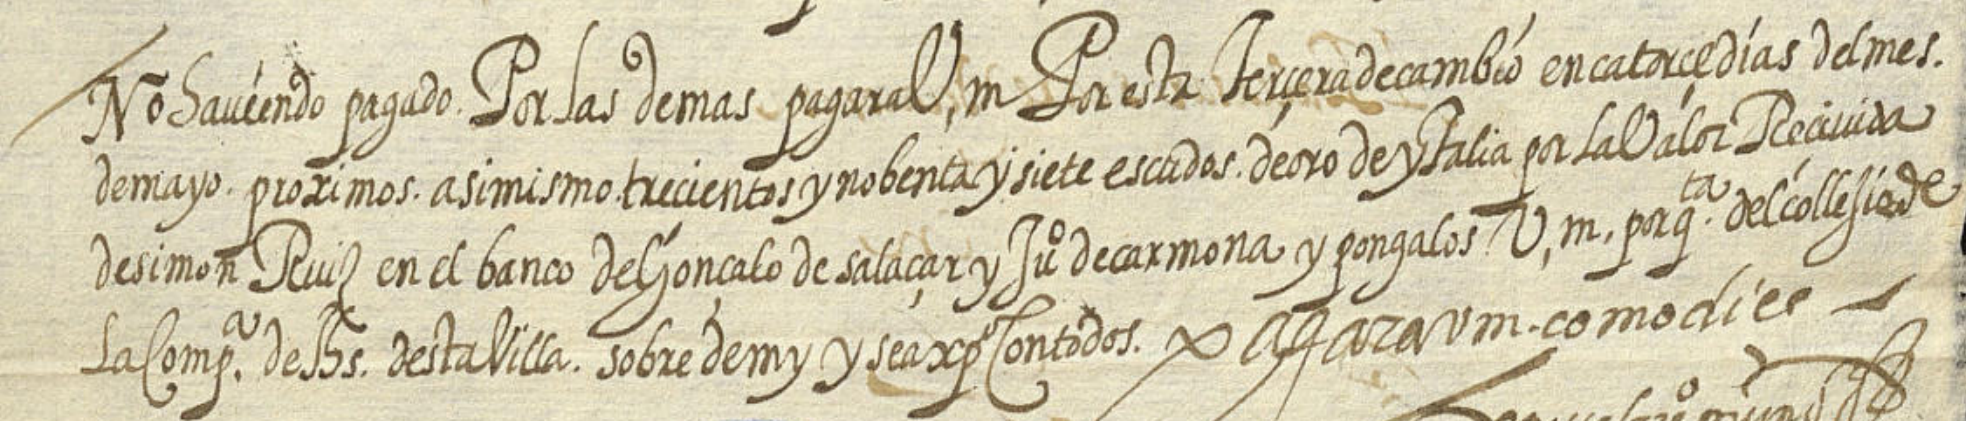 No haviendo pagado. Por las demas pagara V, m Por esta Terçera de cambio en catorçe dias del mes.
de mayo. proximos. asimismo. trecientos y nobenta y siete escudos. de oro de ytalia por la Valor Reciuida
de simon Ruiz en el banco de Gonçalo de salaçar y Juº de carmona y pongalos V, m, por qta. del collesio de
la Compª. de Jhs. desta Villa. sobre de my y sea xpº Con todos. agara vm. como diee